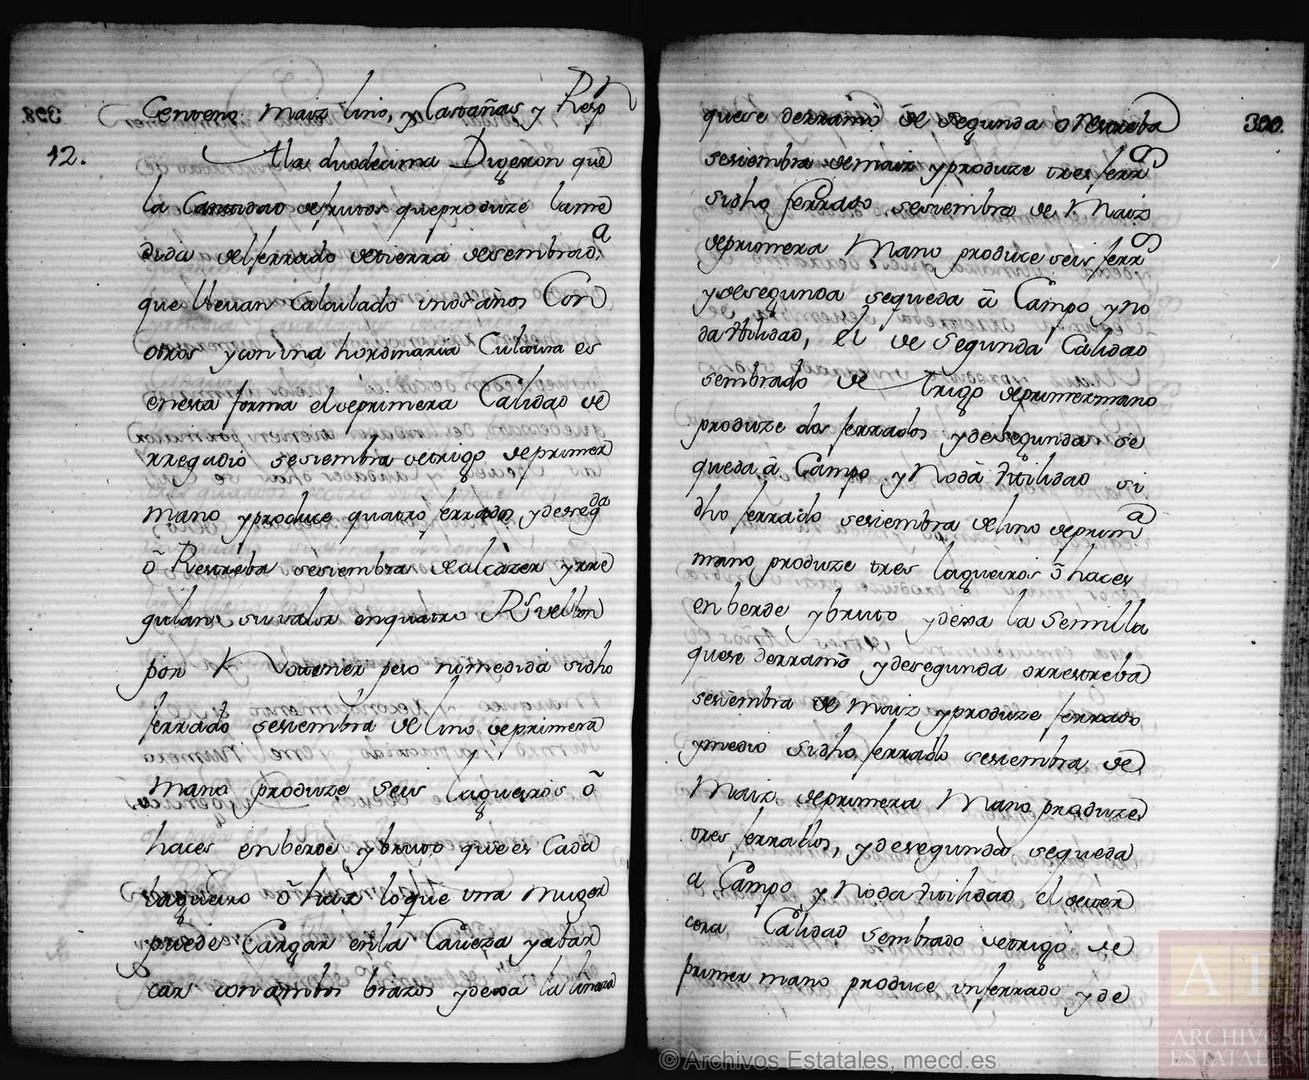 Centeno Maiz lino, y Castañas y Resp
12.
A la duodecima Dixeron que
la Cantidad de frutos que produze la me
dida del ferrado de tierra de sembrad.a
que llevan Calculado unos años Con
otros y con una hordinaria Cultura es
en esta forma el de primera Calidad de
rregadio se siembra de trigo de primer
mano y produce quatro ferrados, y de seg.da
o Restreba se siembra de alcazer y rre
gulan su valor en quatro R.s vellon
por no Venderse por medida sidho
ferrado se siembra de lino de primera
mano produze seis laqueiros o
haces en berde y bruto que es Cada
laqueiro o haz lo que una muger
puede Cargar en la Caveza y abar
car con ambos brazos y dexa la linaza
que se derramo de segunda o Restreba
se siembra de maiz y produze tres ferr.os
sidho ferrado, se siembra de Maiz
de primera Mano produze seis ferr.os
y de segunda se queda a Campo y no
da Utilidad, el de segunda Calidad
sembrado de trigo de primer mano
produze dos ferrados y de segunda se
queda a Campo y No da Utilidad si
dho ferrado se siembra de lino de prim.a
mano, produze tres laqueiros o haces
en berde y bruto y dexa la Semilla
que se derramo y de segunda o rrestreba
se siembra de Maiz y produze ferrado
y medio sidho ferrado se siembra de
Maiz de primera Mano produze
tres ferrados, y de segunda se queda
a Campo y No da Utilidad el de ter
cera Calidad sembrado de trigo de
primer mano produce un ferrado y de
© Archivos Estatales, mecd.es
AE
ARCHIVOS
ESTATALES